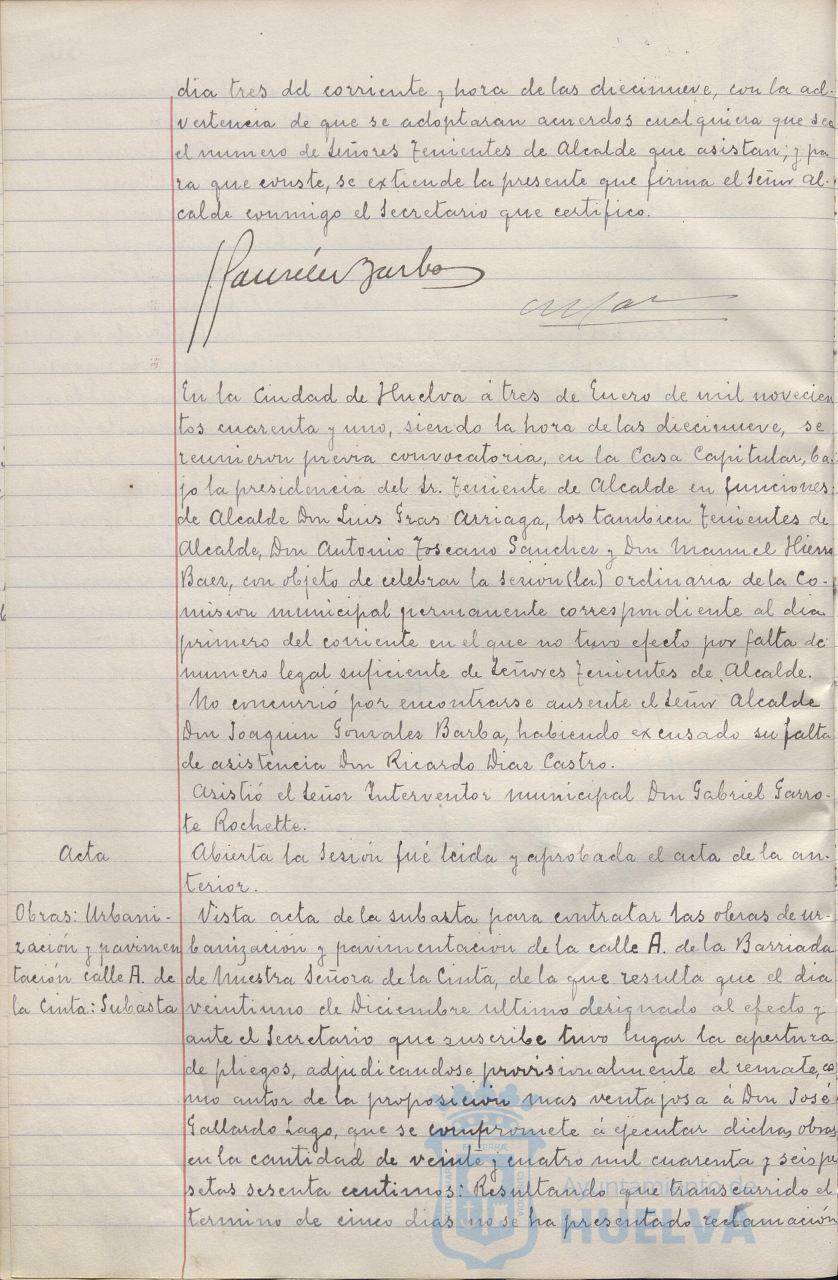 dia tres del corriente y hora de las diecinueve, con la ad-
vertencia de que se adoptaran acuerdos cualquiera que sea
el numero de Señores Tenientes de Alcalde que asistan; y pa
ra que conste, se extiende la presente que firma el Señor Al-
calde conmigo el Secretario que certifico.
Barba
En la Ciudad de Huelva á tres de Enero de mil novecien
tos cuarenta y uno, siendo la hora de las diecinueve, se
reunieron previa convocatoria, en la Casa Capitular, ba-
jo la presidencia del Sr. Teniente de Alcalde en funciones
de Alcalde Don Luis Gras Arriaga, los tambien Tenientes de
Alcalde, Don Antonio Toscano Sanchez y Don Manuel Hierro
Baez, con objeto de celebrar la sesion (la) ordinaria de la Co-
mision municipal permanente correspondiente al dia
primero del corriente en el que no tuvo efecto por falta de
numero legal suficiente de Señores Tenientes de Alcalde.
No concurrió por encontrarse ausente el Señor Alcalde
Don Joaquin Gonzalez Barba, habiendo excusado su falta
de asistencia Don Ricardo Diaz Castro.
Asistió el Señor Interventor municipal Don Gabriel Garro-
te Rochette.
Acta
Abierta la Sesión fué leida y aprobada el acta de la an-
terior.
Obras: Urbani-
zación y pavimen
tación calle A. de
la Cinta: Subasta
Vista acta de la subasta para contratar las obras de ur-
banización y pavimentacion de la calle A. de la Barriada
de Nuestra Señora de la Cinta, de la que resulta que el dia
veintiuno de Diciembre ultimo designado al efecto y
ante el Secretario que suscribe tuvo lugar la apertura
de pliegos, adjudicandose provisionalmente el remate, co
mo autor de la proposición mas ventajosa á Don José
Gallardo Lago, que se compromete á ejecutar dichas obras
en la cantidad de veinte y cuatro mil cuarenta y seis pe
setas sesenta centimos: Resultando que transcurrido el
termino de cinco dias no se ha presentado reclamación
Ayuntamiento de
HUELVA